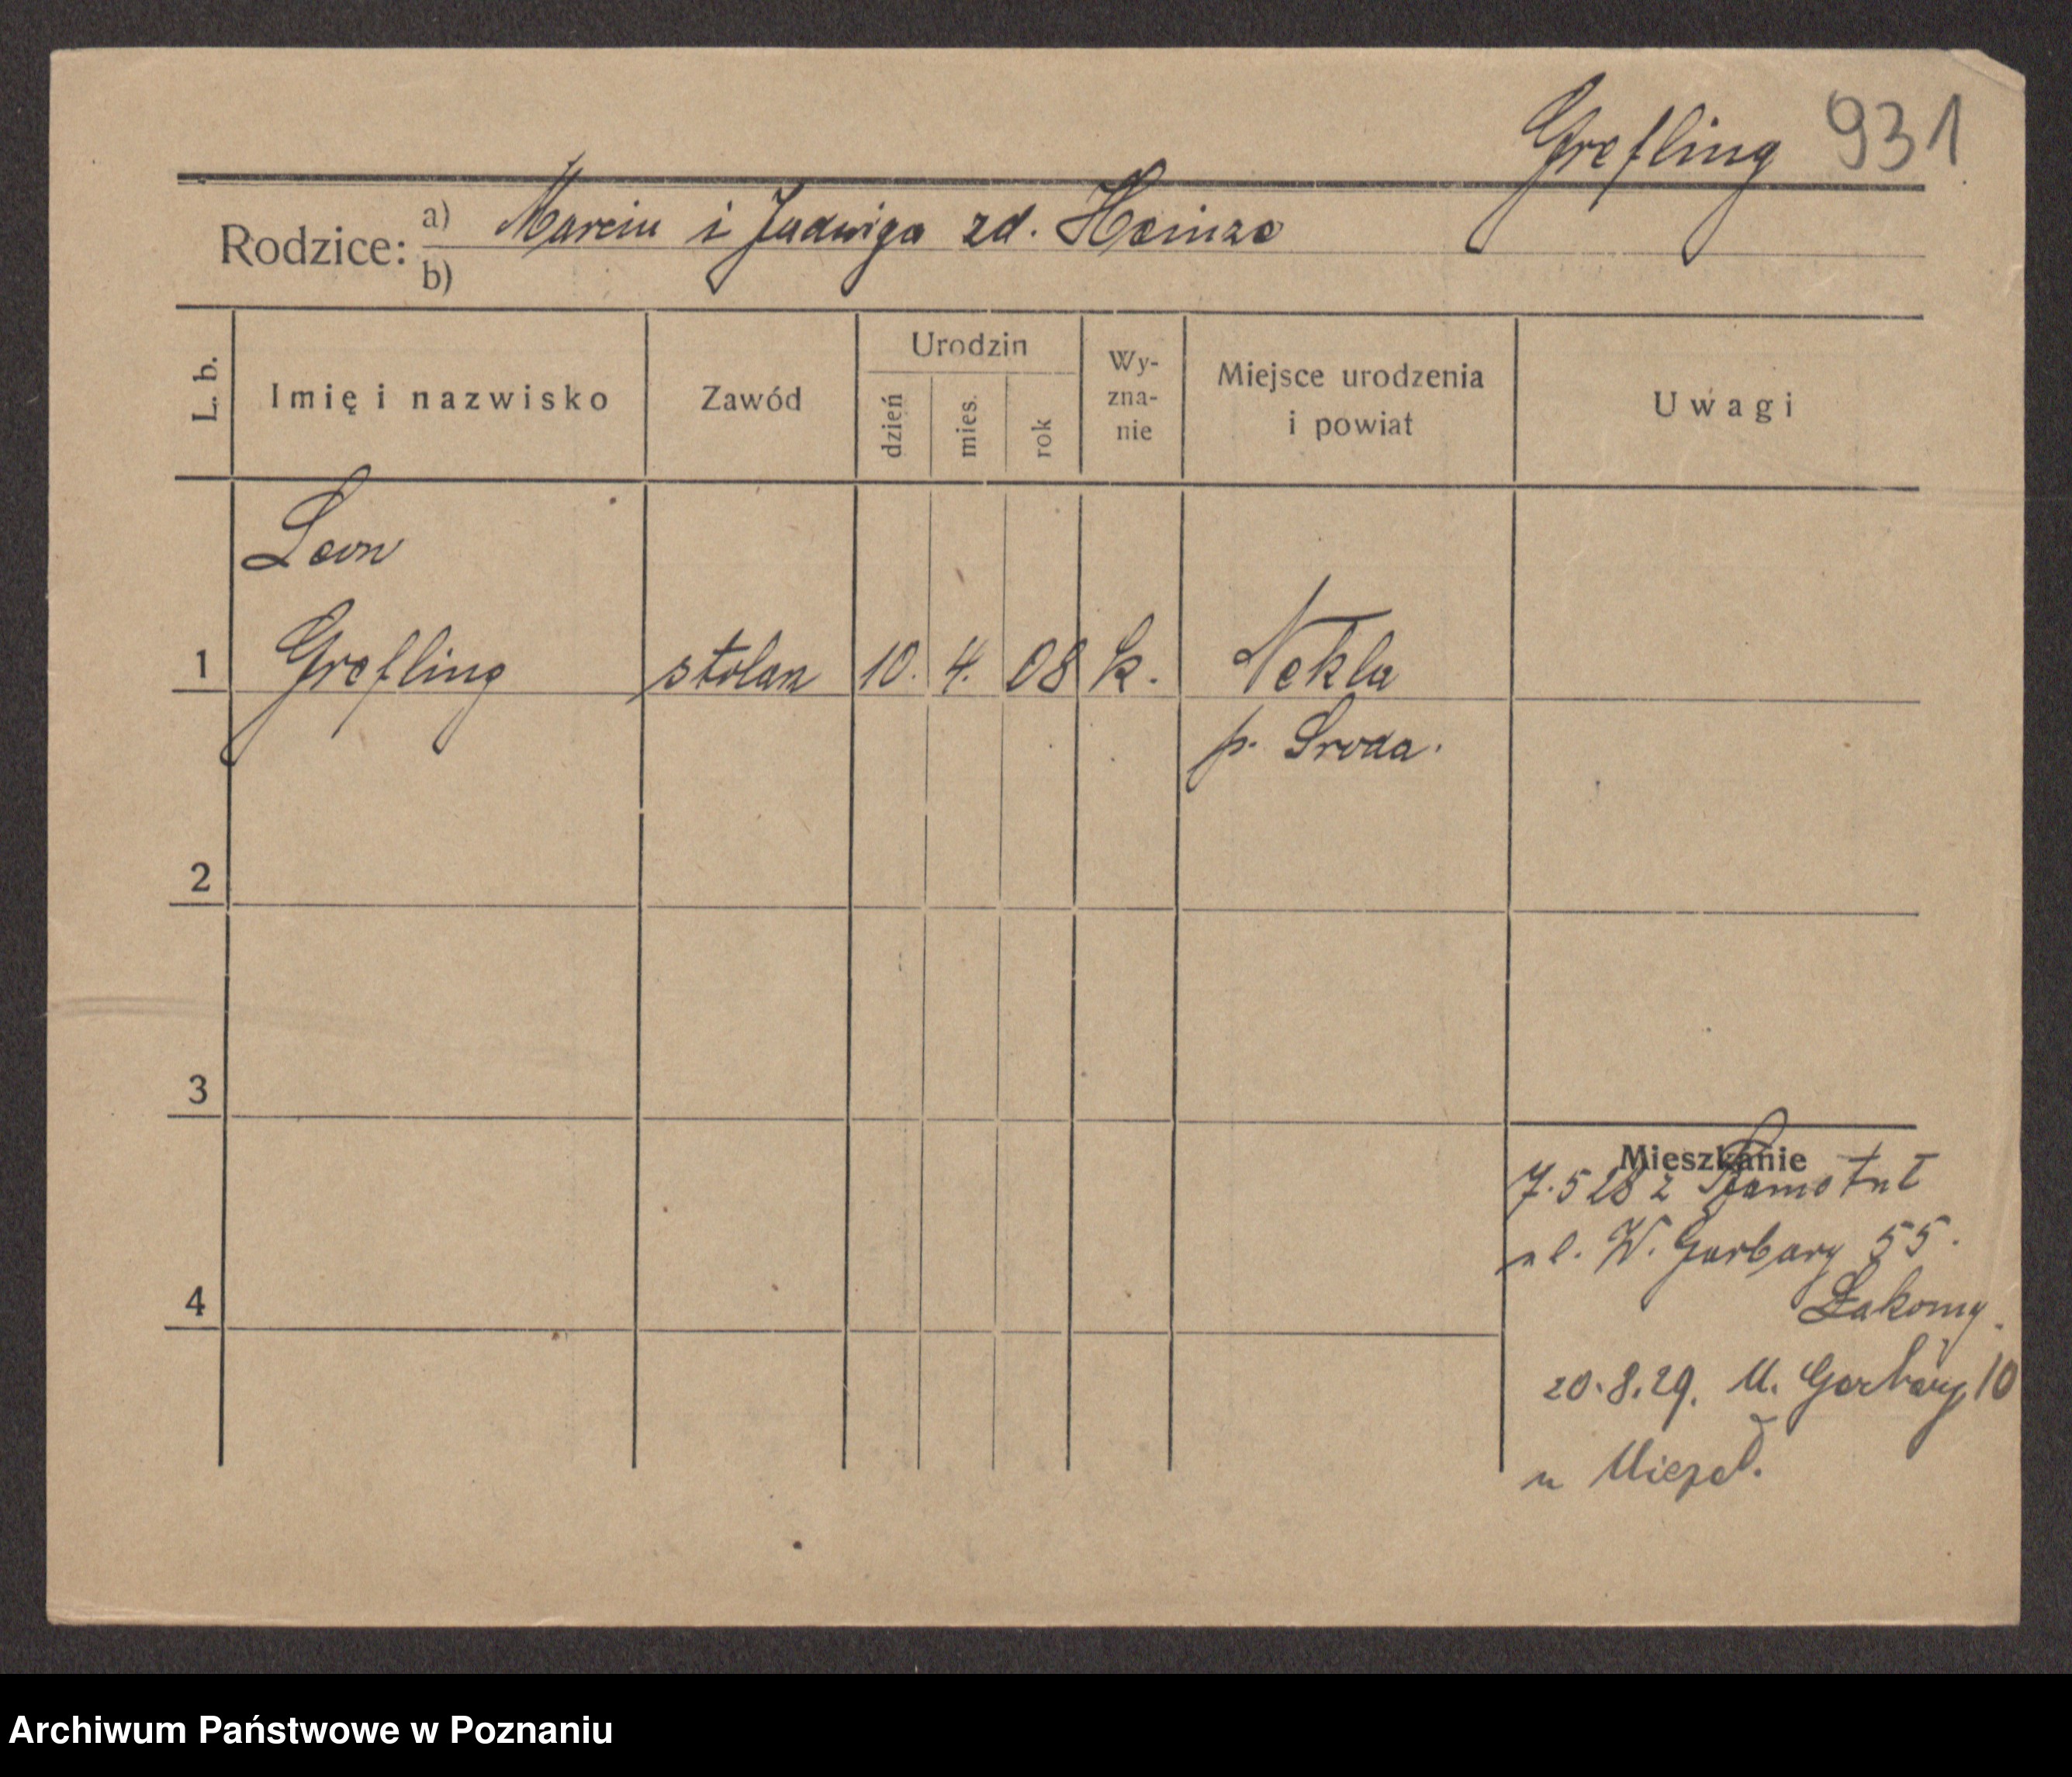 Grefling 931
Rodzice: a) Marcin i Jadwiga zd. Heinze
b)
L. b.
Imię i nazwisko
Zawód
Urodzin
dzień
mies.
rok
Wy-
zna-
nie
Miejsce urodzenia
i powiat
Uwagi
Leon
1 Grefling stolarz 10. 4. 08 k. Nekla
p. Sroda.
2
3
Mieszkanie
7.5 28 z
ul. W. Garbary 55.
4
Łakomy.
20.8.29. M. Garbary 10
u
Archiwum Państwowe w Poznaniu